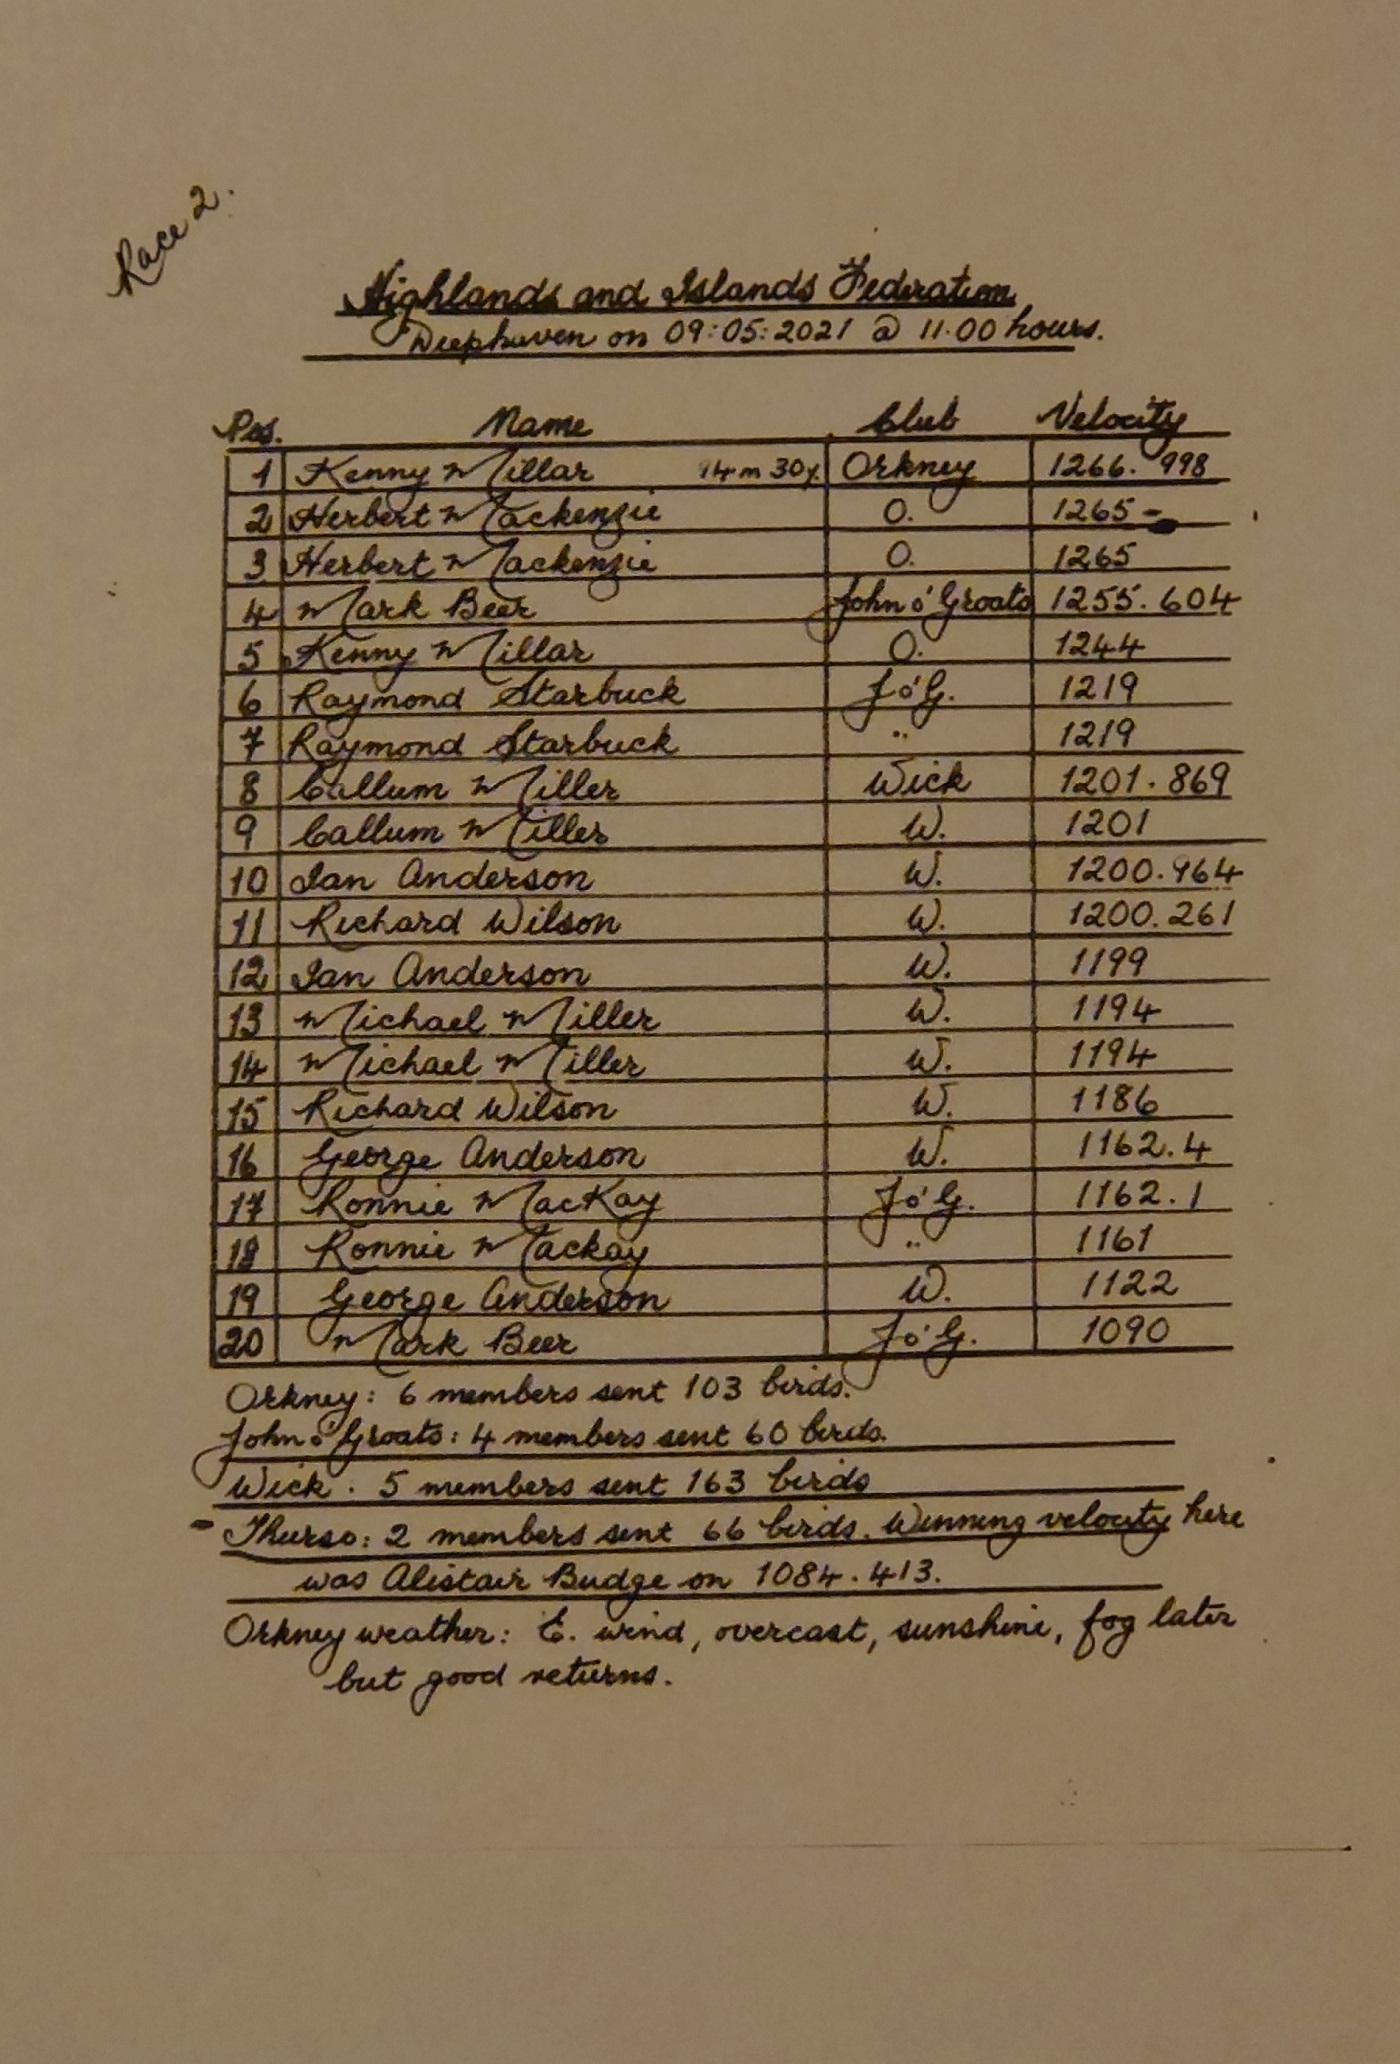 Race 2.
Highlands and Islands Federation
Deephaven on 09:05:2021 @ 11.00 hours.
Pos. Name Club Velocity
1 Kenny Millar 94m 30y. Orkney 1266.998
2 Herbert Mackenzie O. 1265
3 Herbert Mackenzie O. 1265
4 Mark Beer John o' Groats 1255.604
5 Kenny Millar O. 1244
6 Raymond Starbuck J o' G. 1219
7 Raymond Starbuck " 1219
8 Callum Miller Wick 1201.869
9 Callum Miller W. 1201
10 Ian Anderson W. 1200.964
11 Richard Wilson W. 1200.261
12 Ian Anderson W. 1199
13 Michael Miller W. 1194
14 Michael Miller W. 1194
15 Richard Wilson W. 1186
16 George Anderson W. 1162.4
17 Ronnie MacKay J o' G. 1162.1
18 Ronnie Mackay " 1161
19 George Anderson W. 1122
20 Mark Beer J o' G. 1090
Orkney: 6 members sent 103 birds.
John o' Groats: 4 members sent 60 birds.
Wick. 5 members sent 163 birds
Thurso: 2 members sent 66 birds. Winning velocity here
was Alistair Budge on 1084.413.
Orkney weather: E. wind, overcast, sunshine, fog later
but good returns.